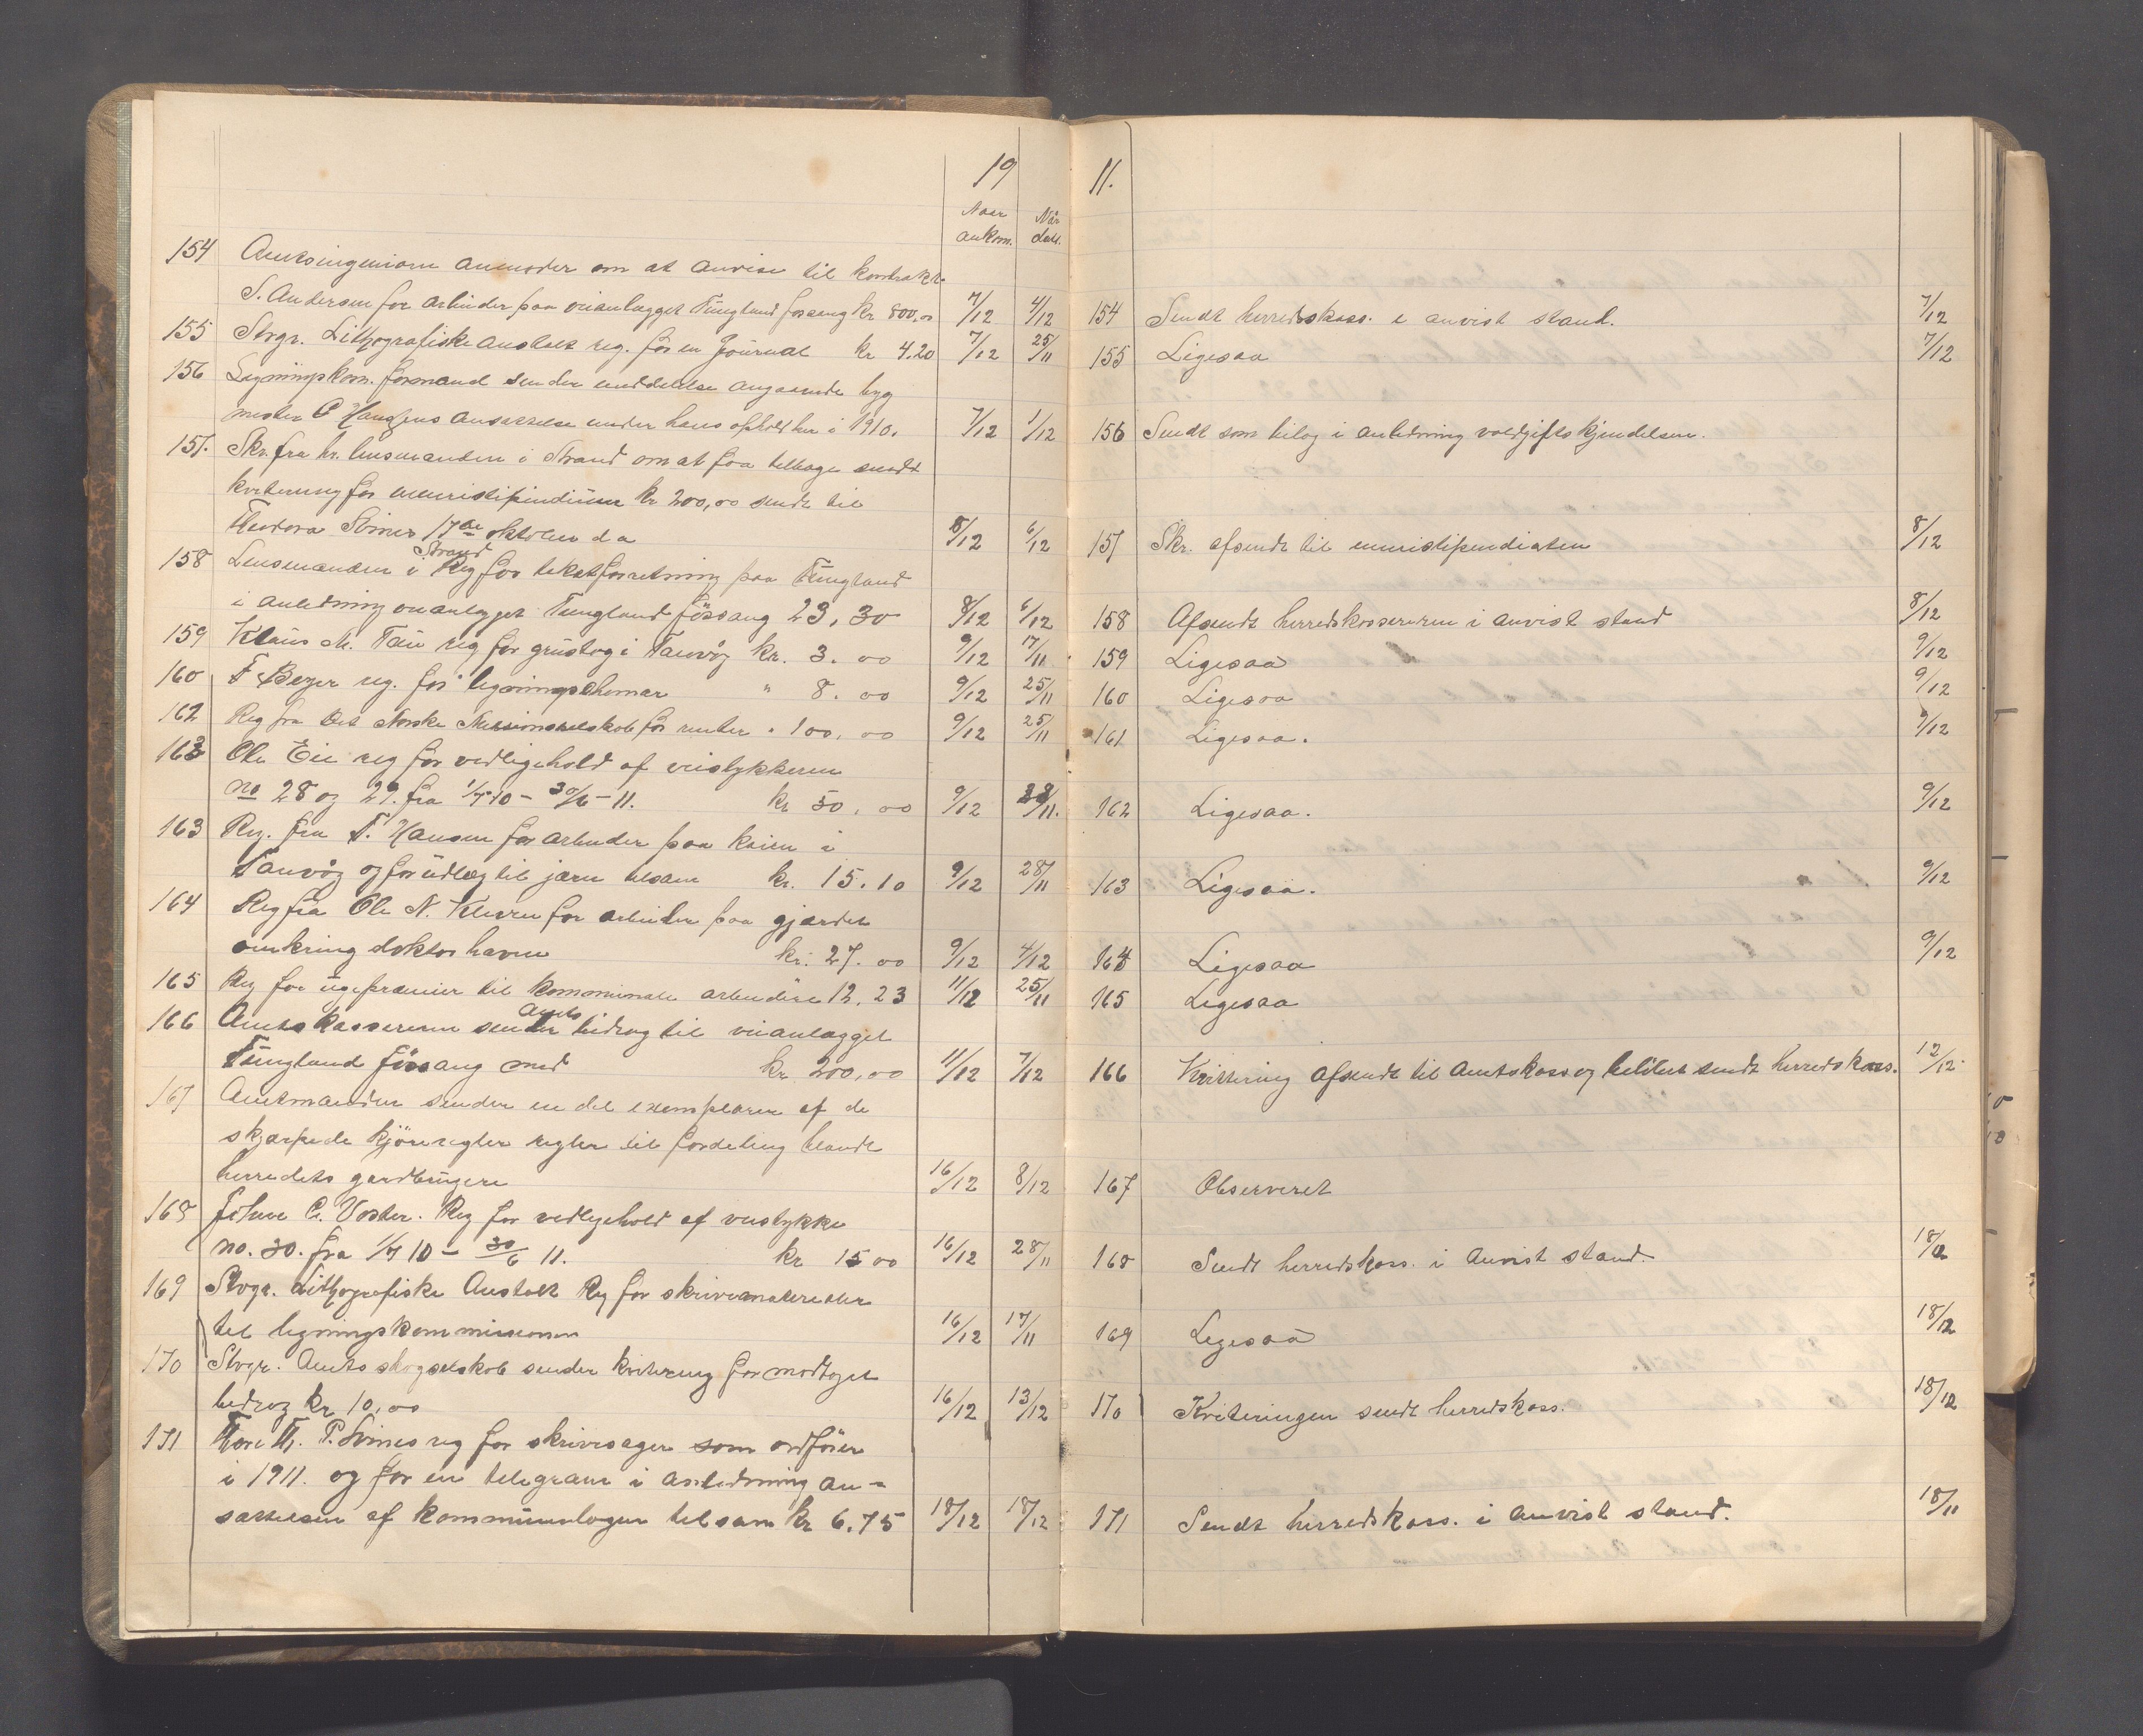 19
11.
Naar ankom.
Når dat.
154 Amtsingeniøren anmoder om at anvise til kontrakt.
S. Andersen for arbeider paa veianlægget Tungland fossang kr 800,00 7/12 4/12
155 Stvgr. Lithografiske anstalt reg. for en Journal kr 4.20 7/12 25/11
156 Ligningskom. formand sender meddelelse angaaende byg
mester C Hansens ansættelse under hans ophold her i 1910. 7/12 1/12
157. Skr. fra hr. lensmanden i Strand om at faa tilbage sendt
kvitering for stipendium kr 200,00 sendt til
Theodora Svines 17de oktober d a 8/12 6/12
158 Lensmanden i Strand Reg for takstforretning paa Tungland
i anledning veianlægget Tungland fössang 23,30 8/12 6/12
159 Klaus M. Tau reg for grustog i Tauvåg kr. 3.00 9/12 17/11
160 F Beyer reg. for ligningschemar " 8.00 9/12 25/11
162 Reg fra Det Norske Missionsselskab for renter " 100,00 9/12 25/11
163 Ole Eie reg for vedligehold af veistykkerne
no 28 og 29. fra 1/7 10 - 30/6 - 11. kr 50,00 9/12 28/11.
163 Reg. fra T. Hansen for arbeider paa kaien i
Tauvåg og for udlæg til jærn tilsam kr. 15.10 9/12 28/11
164 Reg fra Ole N. Kleven for arbeider paa gjærdet
omkring doktorhaven kr. 27.00 9/12 4/12
165 Reg for ugepræmier til kommunale arbeidere 12.23 11/12 25/11
166 Amtskassereren sender Amts bidrag til veianlægget
Tungland fössang med kr 200,00 11/12 7/12
167 Amtmanden sender en del exemplarer af de
skjærpede kjöreregler regler til fordeling blandt
herredets gardbrugere 16/12 8/12
168 Johne C. Voster. Reg for vedligehold af veistykke
no. 30. fra 1/7 10 - 30/6 11. kr 15 00 16/12 28/11
169 Stvgr. Lithografiske Anstalt Reg for skrivematerialer
til ligningskommissionen 16/12 17/11
170 Stvgr. Amts skogselskab sender kvitering for modtaget
bidrag kr 10,00 16/12 13/12
171 Tore Th. P. Svines reg for skrivesager som ordförer
i 1911. og for en telegram i anledning an=
sættelsen af kommunelægen tilsam kr 6.75 18/12 18/12
154 Sendt herredskass. i anvist stand. 7/12
155 Ligesaa 7/12
156 Sendt som bilag i anledning voldgiftskjendelsen.
157 Skr. afsendt til stipendiaten 8/12
158 Afsendt herredskassereren i anvist stand 8/12
159 Ligesaa 9/12
160 Ligesaa 9/12
161 Ligesaa. 9/12
162 Ligesaa. 9/12
163 Ligesaa. 9/12
164 Ligesaa 9/12
165 Ligesaa
166 Kvittering afsendt til Amtskass og belöbet sendt herredskass. 12/12.
167 Observeret
168 Sendt herredskass. i anvist stand. 18/12
169 Ligesaa 18/12
170 Kviteringen sendt herredskass. 18/12
171 Sendt herredskass. i anvist stand. 18/11